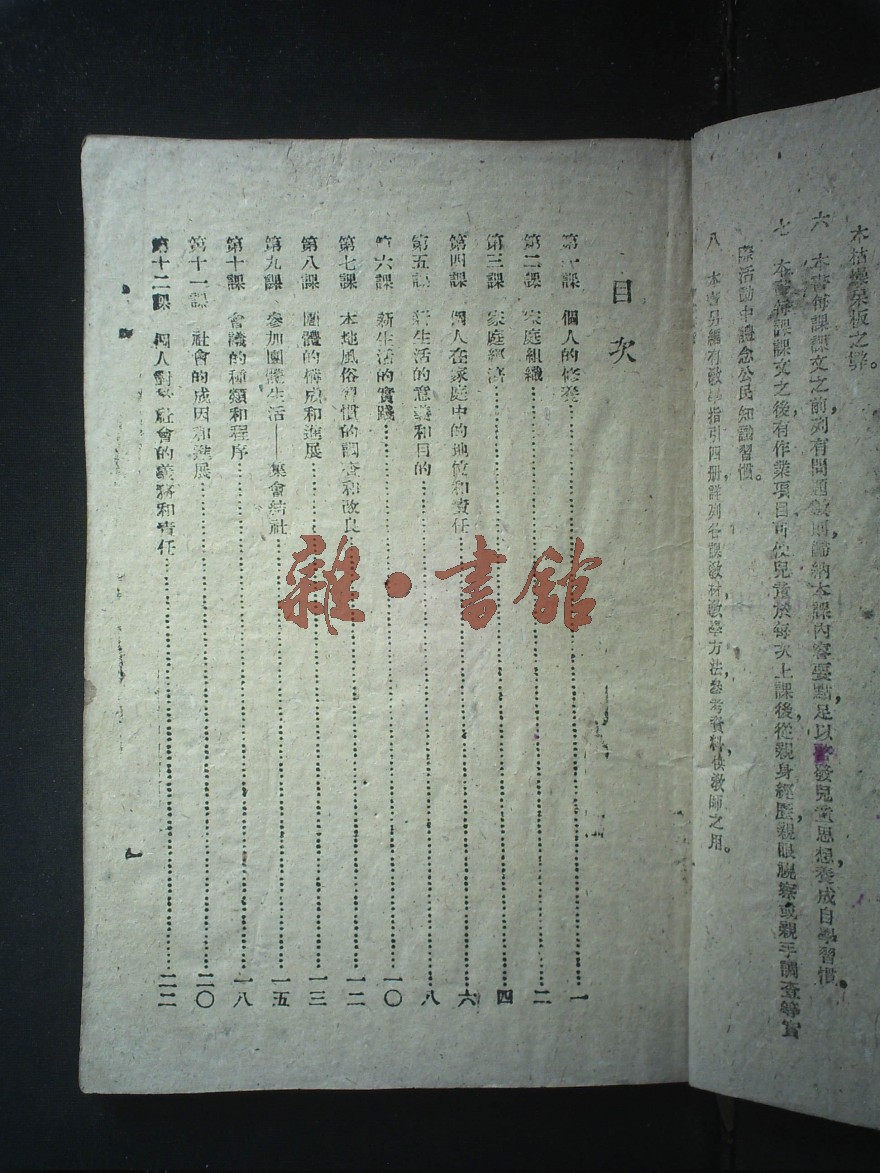 木枯燥呆板之弊。
六　本書每課課文之前，列有問題數則，歸納本課內容要點，足以啓發兒童思想，養成自學習慣。
七　本書每課課文之後，有作業項目，可使兒童於每次上課後，從親身經歷，親眼視察，或親手調查等實
際活動中，體念公民知識習慣。
八　本書另編有教學指引四册，詳列各課教材，教學方法，參考資料，供教師之用。
目次
第一課　個人的修養……一
第二課　家庭組織……二
第三課　家庭經濟……四
第四課　個人在家庭中的地位和責任……六
第五課　新生活的意義和目的……八
第六課　新生活的實踐……一〇
第七課　本地風俗習慣的調查和改良……一二
第八課　團體的構成和進展……一三
第九課　參加團體生活——集會結社……一五
第十課　會議的種類和程序……一八
第十一課　社會的成因和進展……二〇
第十二課　個人對於社會的義務和責任……二二
雜·書館